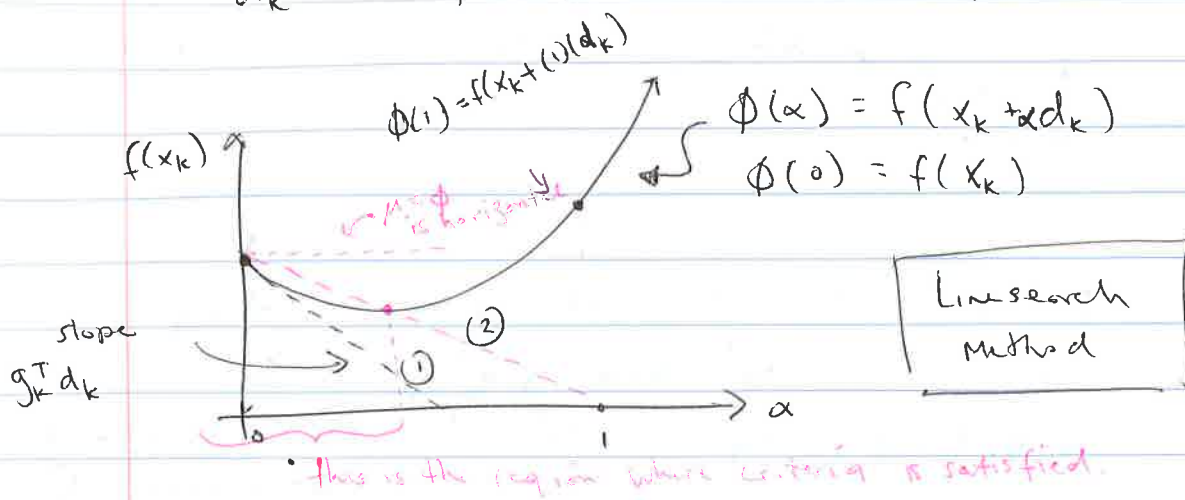 φ(1) = f(x_k + (1)(d_k)
f(x_k)
φ(α) = f( x_k + αd_k )
φ(0) = f( x_k )
μ = φ
is horizontal
Linesearch
Method
slope
g_k^T d_k
②
①
α
0
1
This is the region where criteria is satisfied.